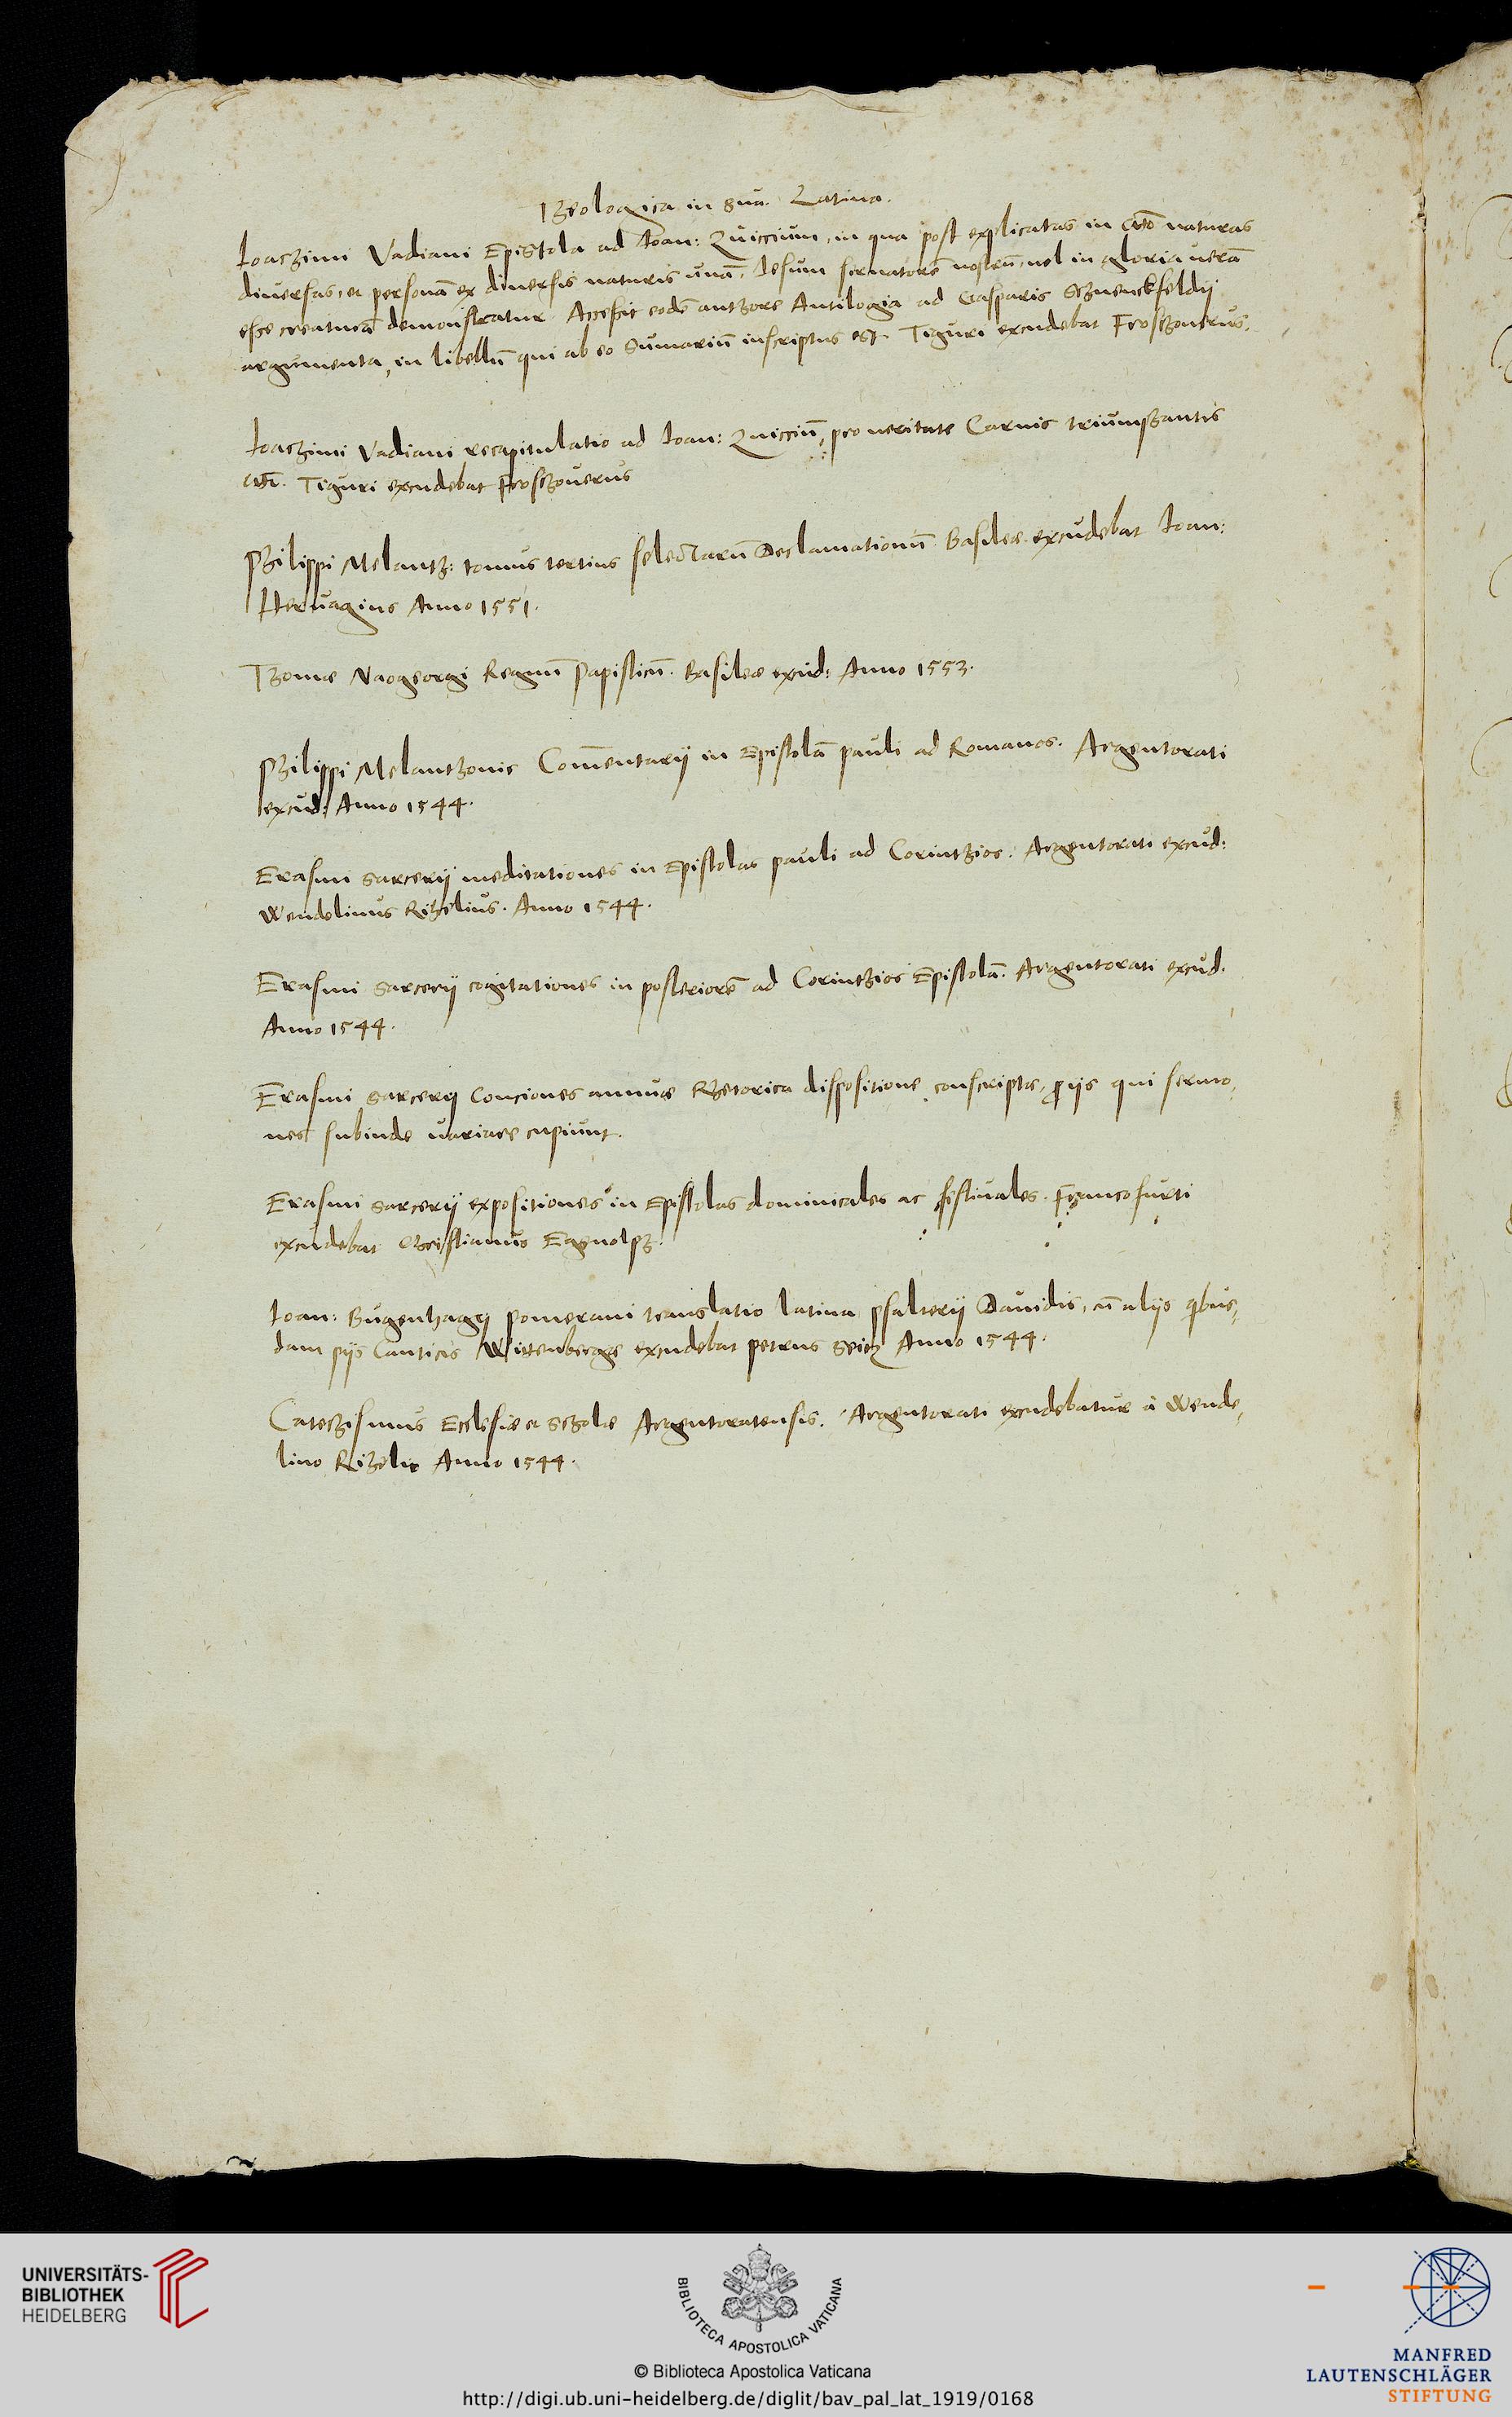 Theologica in 8ua. Latina.
Ioachimi Vadiani Epistola ad Ioan: Zuiccium, in qua post explicatas in Chro naturas
diuersas, et personā ex diuersis naturis unā, Iesum seruatorē nostrū, uel in gloria uerā
esse creaturā demonstratur. Accessit eodē authore Antilogia ad Gasparis Schuenckfeldij
argumenta, in libellū qui ab eo Sumariū inscriptus est. Tiguri excudebat Froschouerus.
Ioachimi Vadiani recapitulatio ad Ioan: Zuicciū, pro ueritate Carnis triumphantis
Chri. Tiguri excudebat Froschouerus
Philippi Melanth: tomus tertius selectarū Declamationū. Basileae excudebat Ioan:
Heruagius Anno 1551.
Thomae Naogeorgi Regnū Papisticū. Basileae excud: Anno 1553.
Philippi Melanthonis Comentarij in Epistolā pauli ad Romanos. Argentorati
excud: Anno 1544.
Erasmi Sarcerij meditationes in Epistolas pauli ad Corinthios. Argentorati excud:
Wendelinus Rihelius. Anno 1544.
Erasmi Sarcerij cogitationes in posteriorē ad Corinthios Epistolā. Argentorati excud.
Anno 1544.
Erasmi Sarcerij Conciones annuae Rhetorica dispositione conscriptae, p ijs qui sermo,
nes subinde uariare cupiunt.
Erasmi Sarcerij expositiones in Epistolas dominicales ac festiuales. Francofurti
excudebat Christianus Egnolph.
Ioan: Bugenhagij Pomerani translatio latina psalterij Dauidis, cū alijs qbus,
dam pijs Canticis Wittenbergae excudebat petrus Seitz Anno 1544.
Catechismus Ecclesiae et Scholae Argentoratensis. Argentorati excudebatur à Wende,
lino Rihelio Anno 1544.
UNIVERSITÄTS-
BIBLIOTHEK
HEIDELBERG
BIBLIOTECA APOSTOLICA VATICANA
© Biblioteca Apostolica Vaticana
http://digi.ub.uni-heidelberg.de/diglit/bav_pal_lat_1919/0168
MANFRED
LAUTENSCHLÄGER
STIFTUNG